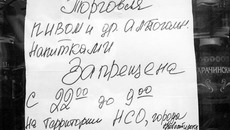 Торговля
пивом и др. алкогол.
напитками
Запрещена
с 22 00 до 9 00
на территории НСО, города
КАРАЧИНСКАЯ